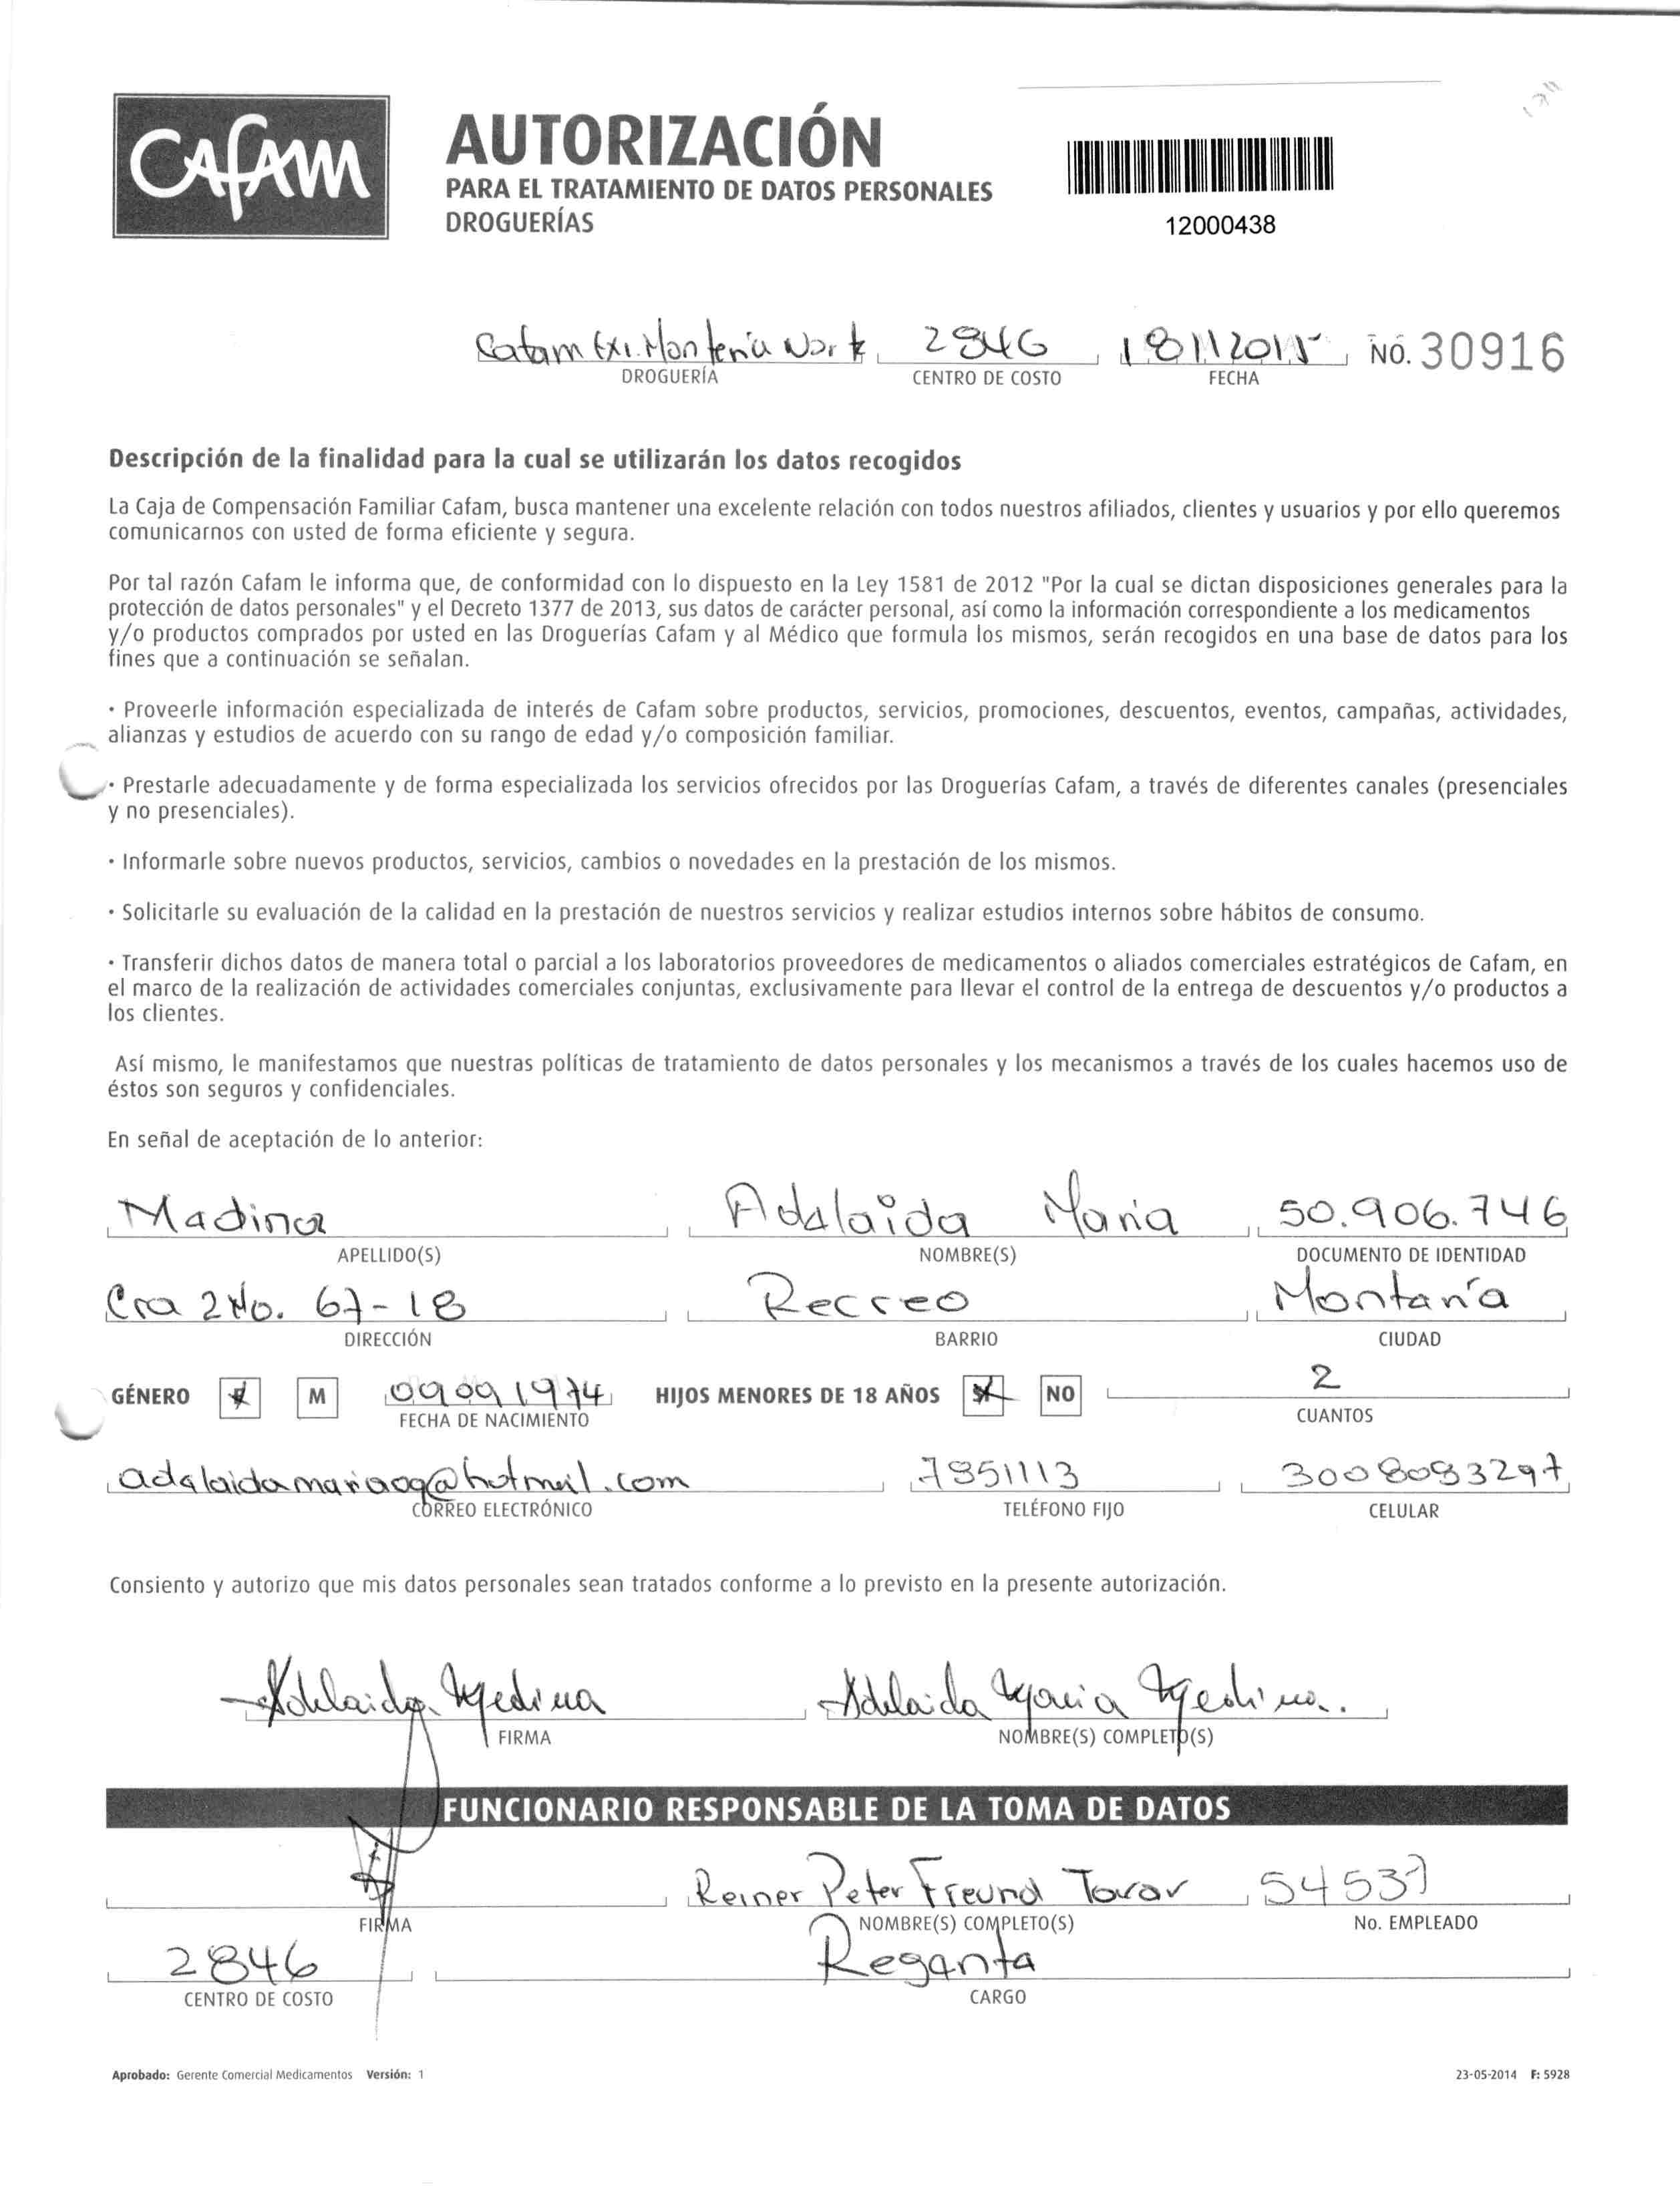 Cafam
AUTORIZACIÓN
PARA EL TRATAMIENTO DE DATOS PERSONALES
DROGUERÍAS
12000438
Cafam Exi. Monteria Norte 2846 18112015 NO. 30916
DROGUERÍA CENTRO DE COSTO FECHA
Descripción de la finalidad para la cual se utilizarán los datos recogidos
La Caja de Compensación Familiar Cafam, busca mantener una excelente relación con todos nuestros afiliados, clientes y usuarios y por ello queremos
comunicarnos con usted de forma eficiente y segura.
Por tal razón Cafam le informa que, de conformidad con lo dispuesto en la Ley 1581 de 2012 "Por la cual se dictan disposiciones generales para la
protección de datos personales" y el Decreto 1377 de 2013, sus datos de carácter personal, así como la información correspondiente a los medicamentos
y/o productos comprados por usted en las Droguerías Cafam y al Médico que formula los mismos, serán recogidos en una base de datos para los
fines que a continuación se señalan.
· Proveerle información especializada de interés de Cafam sobre productos, servicios, promociones, descuentos, eventos, campañas, actividades,
alianzas y estudios de acuerdo con su rango de edad y/o composición familiar.
· Prestarle adecuadamente y de forma especializada los servicios ofrecidos por las Droguerías Cafam, a través de diferentes canales (presenciales
y no presenciales).
· Informarle sobre nuevos productos, servicios, cambios o novedades en la prestación de los mismos.
· Solicitarle su evaluación de la calidad en la prestación de nuestros servicios y realizar estudios internos sobre hábitos de consumo.
· Transferir dichos datos de manera total o parcial a los laboratorios proveedores de medicamentos o aliados comerciales estratégicos de Cafam, en
el marco de la realización de actividades comerciales conjuntas, exclusivamente para llevar el control de la entrega de descuentos y/o productos a
los clientes.
Así mismo, le manifestamos que nuestras políticas de tratamiento de datos personales y los mecanismos a través de los cuales hacemos uso de
éstos son seguros y confidenciales.
En señal de aceptación de lo anterior:
Madina Adalaida Maria 50.906.746
APELLIDO(S) NOMBRE(S) DOCUMENTO DE IDENTIDAD
Cra 2 No. 67-18 Recreo Montaría
DIRECCIÓN BARRIO CIUDAD
GÉNERO F M 09091974 HIJOS MENORES DE 18 AÑOS SI NO 2
FECHA DE NACIMIENTO CUANTOS
adalaidamariaog@hotmail.com 7851113 3008083297
CORREO ELECTRÓNICO TELÉFONO FIJO CELULAR
Consiento y autorizo que mis datos personales sean tratados conforme a lo previsto en la presente autorización.
Adelaida Medina Adelaida Maria Medina.
FIRMA NOMBRE(S) COMPLETO(S)
FUNCIONARIO RESPONSABLE DE LA TOMA DE DATOS
Reiner Peter Freund Tovar 54537
FIRMA NOMBRE(S) COMPLETO(S) No. EMPLEADO
2846 Reganta
CENTRO DE COSTO CARGO
Aprobado: Gerente Comercial Medicamentos Versión: 1 23-05-2014 F: 5928